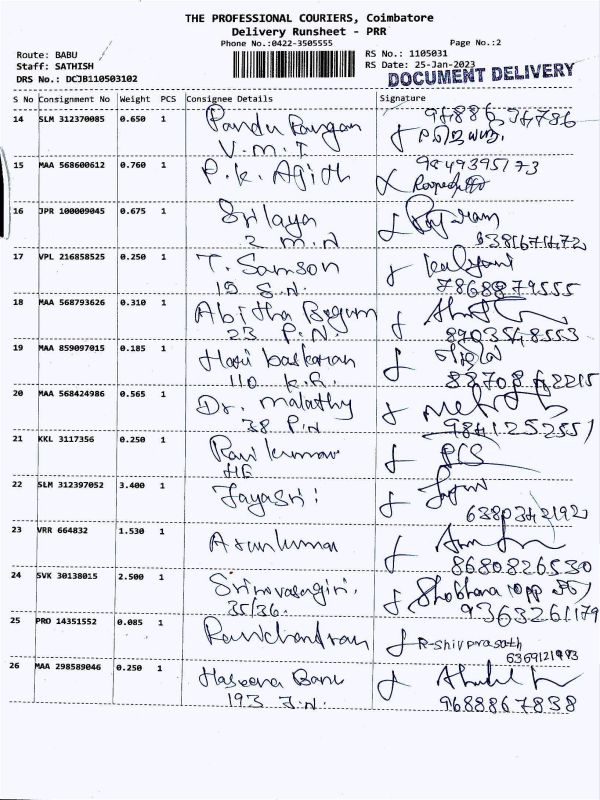 THE PROFESSIONAL COURIERS, Coimbatore
Delivery Runsheet - PRR
Phone No.:0422-3505555 Page No.:2
Route: BABU RS No.: 1105031
Staff: SATHISH RS Date: 25-Jan-2023
DRS No.: DCJB110503102 DOCUMENT DELIVERY
S No Consignment No Weight PCS Consignee Details Signature
14 SLM 312370085 0.650 1 Pandu Rangan
V.M.I
15 MAA 568600612 0.760 1 P.K. Agith 9849395173
16 JPR 100009045 0.675 1 Srilaya
2 M.N 6381671472
17 VPL 216858525 0.250 1 T. Samson Kalyani
15 S.N. 7868879555
18 MAA 568793626 0.310 1 Abitha Begum
23 P.N. 8903548553
19 MAA 859097015 0.185 1 Hari baskaran
110 K.R. 8870842215
20 MAA 568424986 0.565 1 Dr. Malathy
38 P.N 9841252551
21 KKL 3117356 0.250 1 Ravi kumar PCS
22 SLM 312397052 3.400 1 Jayasri
6380342192
23 VRR 664832 1.530 1 Arunkumar
8680826530
24 SVK 30138015 2.500 1 Srinivasagiri. Shobhana
35/36. 9363261179
25 PRO 14351552 0.085 1 Ravichandran R-Shivprasath
6369121993
26 MAA 298589046 0.250 1 Haseena Banu
193 J.N. 9688867838